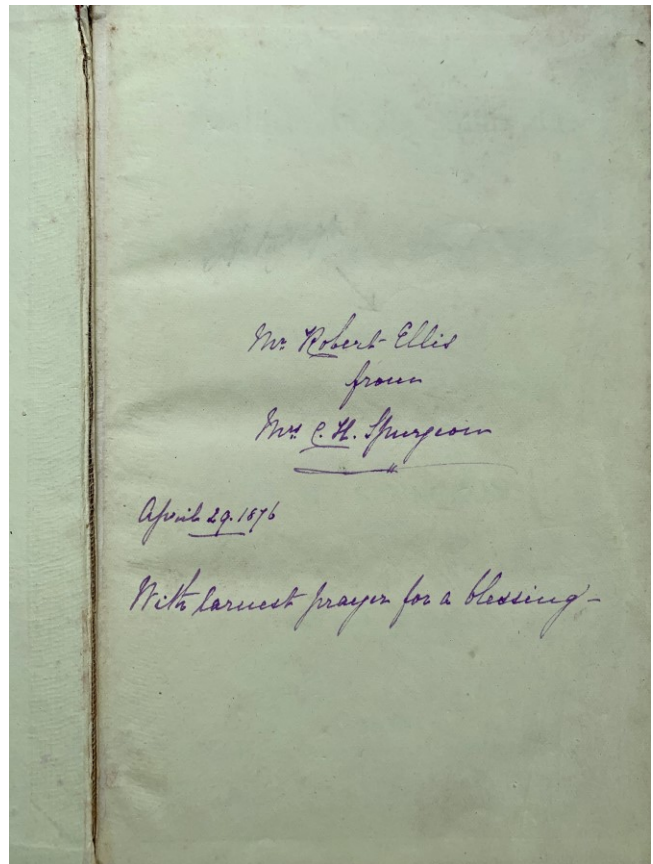 Mr Robert Ellis
from
Mrs C. H. Spurgeon
April 29. 1876
With earnest prayer for a blessing –